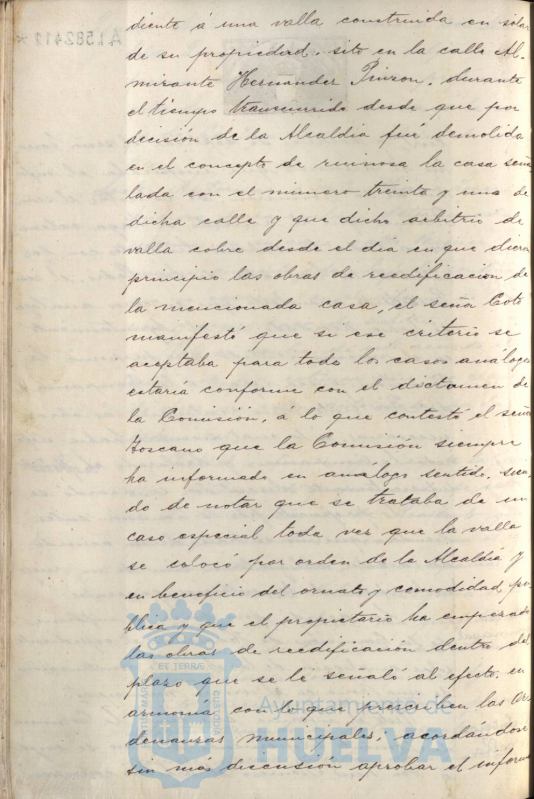 diente á una valla construida en solar
de su propiedad, sito en la calle Al-
mirante Hernandez Pinzon, durante
el tiempo transcurrido desde que por
decisión de la Alcaldia fué demolida
en el concepto de ruinosa la casa seña
lada con el número treinta y uno de
dicha calle y que dicho arbitrio de
valla cobre desde el dia en que dieron
principio las obras de reedificacion de
la mencionada casa, el señor Coto
manifestó que si ese criterio se
aceptaba para todos los casos análogos
estaria conforme con el dictamen de
la Comisión, á lo que contestó el señor
Toscano que la Comisión siempre
ha informado en análogo sentido, sien
do de notar que se trataba de un
caso especial toda vez que la valla
se colocó por orden de la Alcaldía y
en beneficio del ornato y comodidad pú
blica y que el propietario ha empezado
las obras de reedificación dentro del
plazo que se le señaló al efecto, en
armonía con lo que prescriben las Or-
denanzas municipales; acordándose
sin más discusión aprobar el informe
A1.582.411*
Ayuntamiento de
HUELVA